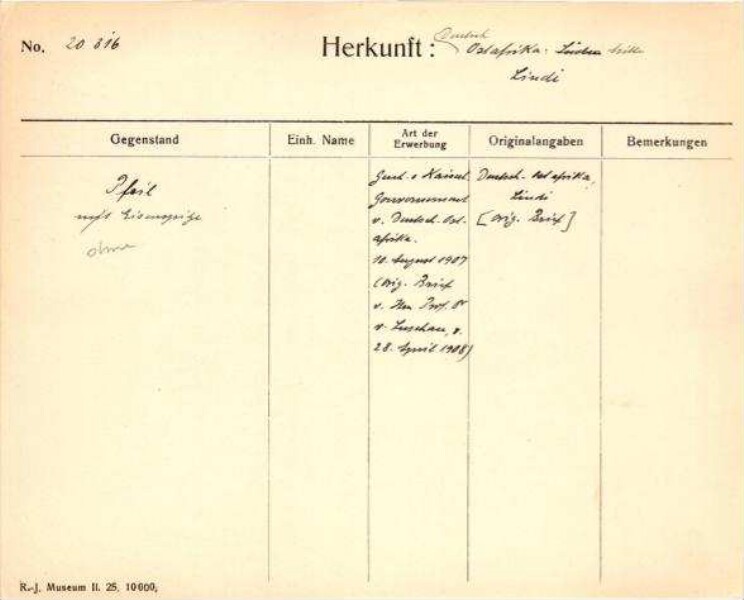 No. 20 816
Herkunft: Deutsch Ostafrika.
Lindi
Gegenstand
Einh. Name
Art der Erwerbung
Originalangaben
Bemerkungen
Pfeil
mit Eisenspitze
ohne
Gesch. v. Kaiserl.
Gouvernement
v. Deutsch-Ost-
afrika.
10. August 1907
(orig. Brief
v. Hrn Prof. Dr
v. Luschan, v.
28. April 1908)
Deutsch-Ostafrika,
Lindi
[orig. Brief]
R.-J. Museum II. 25. 10000.